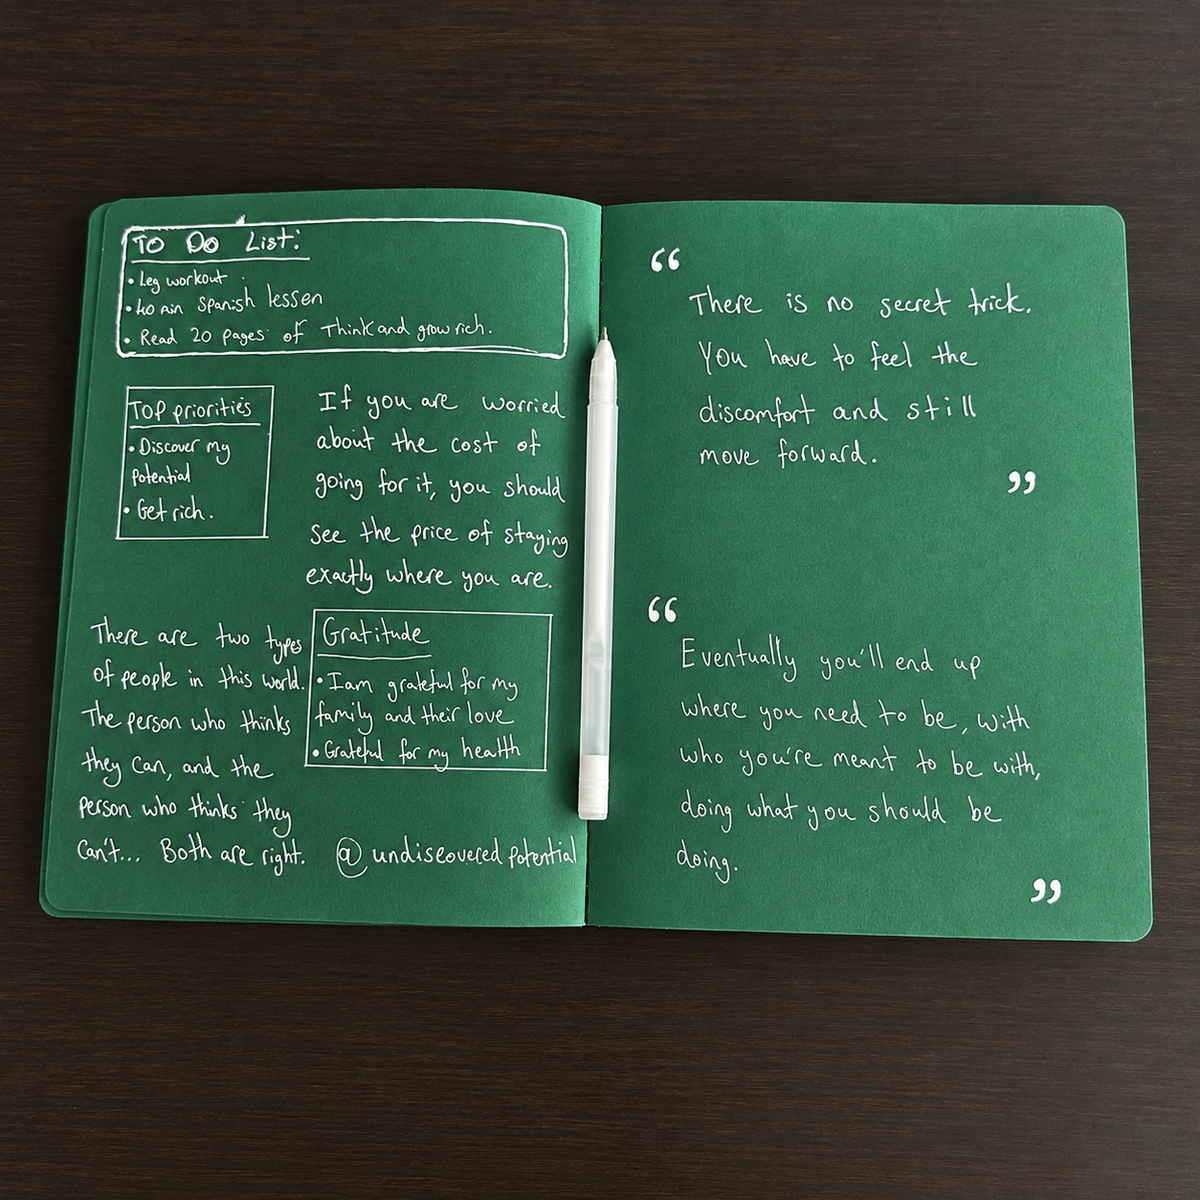 To Do List:
• Leg workout
• 40 min Spanish lesson
• Read 20 pages of Think and grow rich.
Top priorities
• Discover my
potential
• Get rich.
If you are worried
about the cost of
going for it, you should
see the price of staying
exactly where you are.
There are two types
of people in this world.
The person who thinks
they can, and the
person who thinks they
can't... Both are right.
Gratitude
• I am grateful for my
family and their love
• Grateful for my health
@undiscoveredpotential
“
There is no secret trick.
You have to feel the
discomfort and still
move forward.
”
“
Eventually you'll end up
where you need to be, with
who you're meant to be with,
doing what you should be
doing.
”